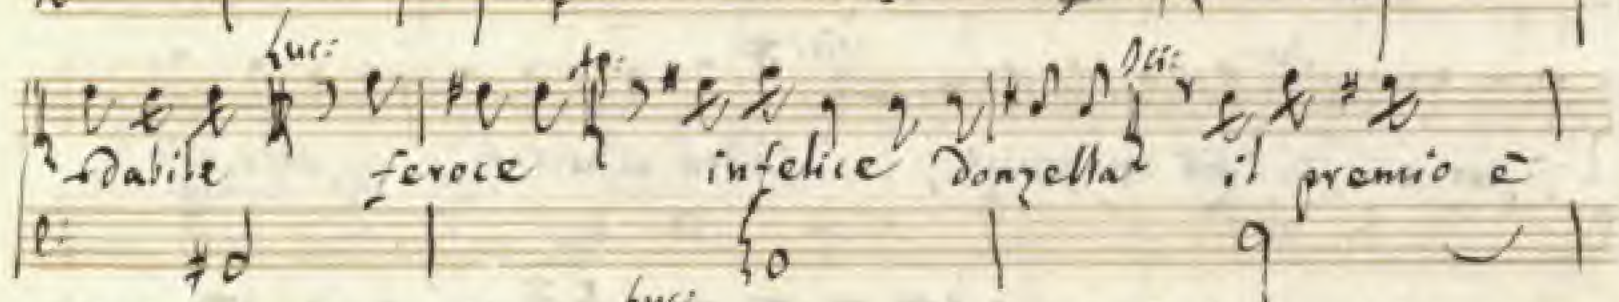 Luc: Ap: Dei:
dabile feroce infelice donzella il premio è
Luc: